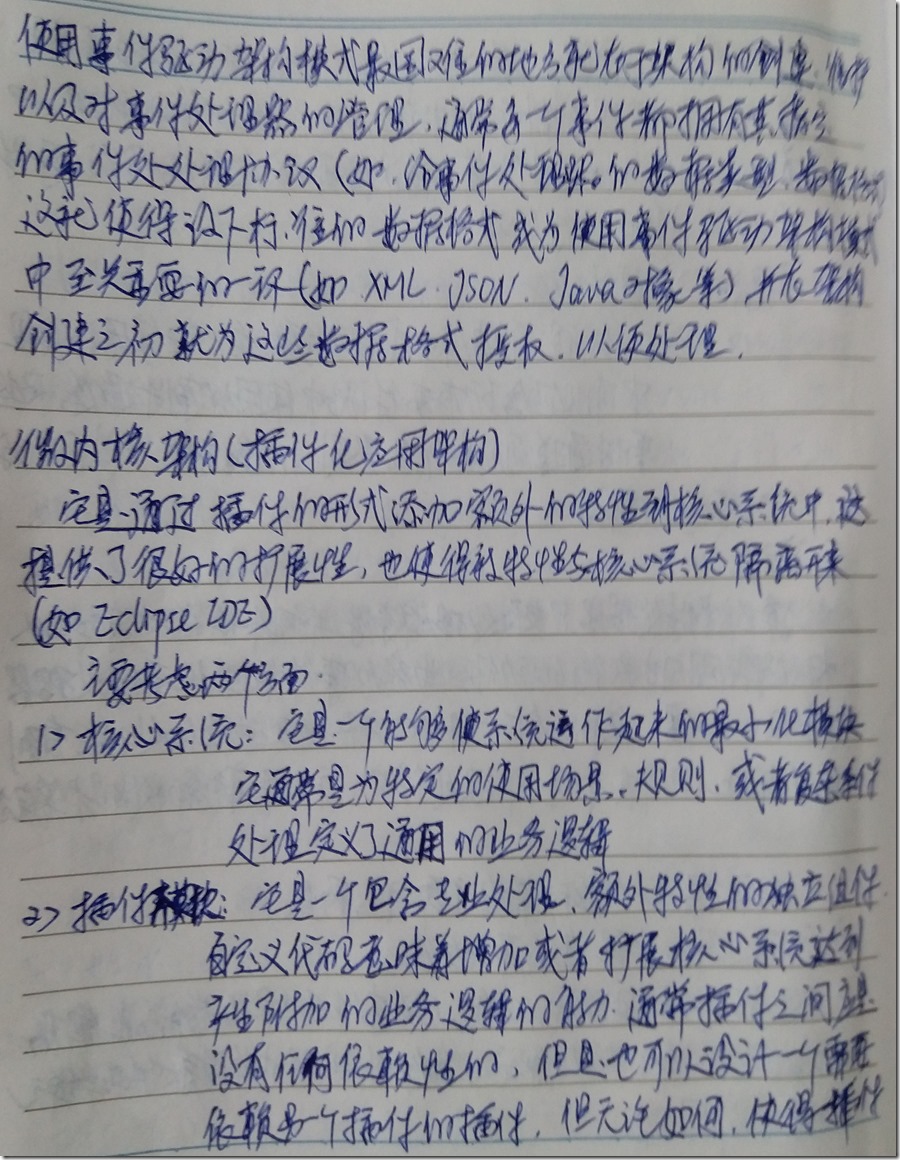 使用事件驱动架构模式最困难的地方就在于架构的创建、维护
以及对事件处理器的管理，通常每一个事件都拥有其指定
的事件处处理协议（如、给事件处理器的数据类型、数据格式）
这就使得设下标准的数据格式成为使用事件驱动架构模式
中至关重要的一环（如 XML、JSON、Java对象等）并在架构
创建之初就为这些数据格式授权、以便处理，
微内核架构（插件化应用架构）
它是通过插件的形式添加额外的特性到核心系统中，这
提供了很好的扩展性，也使得新特性与核心系统隔离开来
（如 Eclipse IDE）
主要考虑两个方面：
1> 核心系统：它是一个能够使系统运作起来的最小化模块
它通常是为特定的使用场景、规则、或者复杂条件
处理定义了通用的业务逻辑
2> 插件模块：它是一个包含专业处理、额外特性的独立组件
自定义代码意味着增加或者扩展核心系统达到
产生附加的业务逻辑的能力. 通常插件之间应是
没有任何依赖性的，但是也可以设计一个需要
依赖另一个插件的插件，但无论如何，使得插件